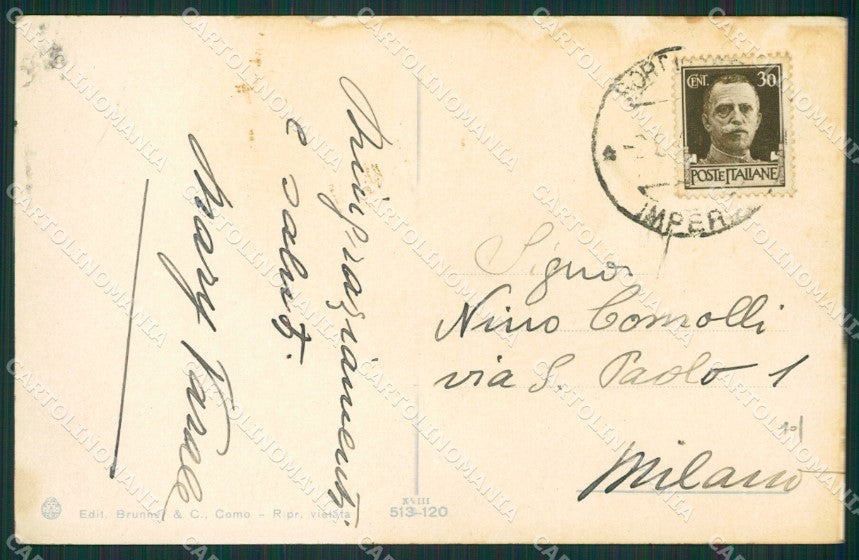 Ringraziamenti
e saluti.
Mary
CENT. 30
POSTE ITALIANE
IMPERIA
Signor
Nino Comolli
via S. Paolo 1
Milano
Edit. Brunner & C., Como - Ripr. vietata
XVIII
513-120
CARTOLINOMANIA